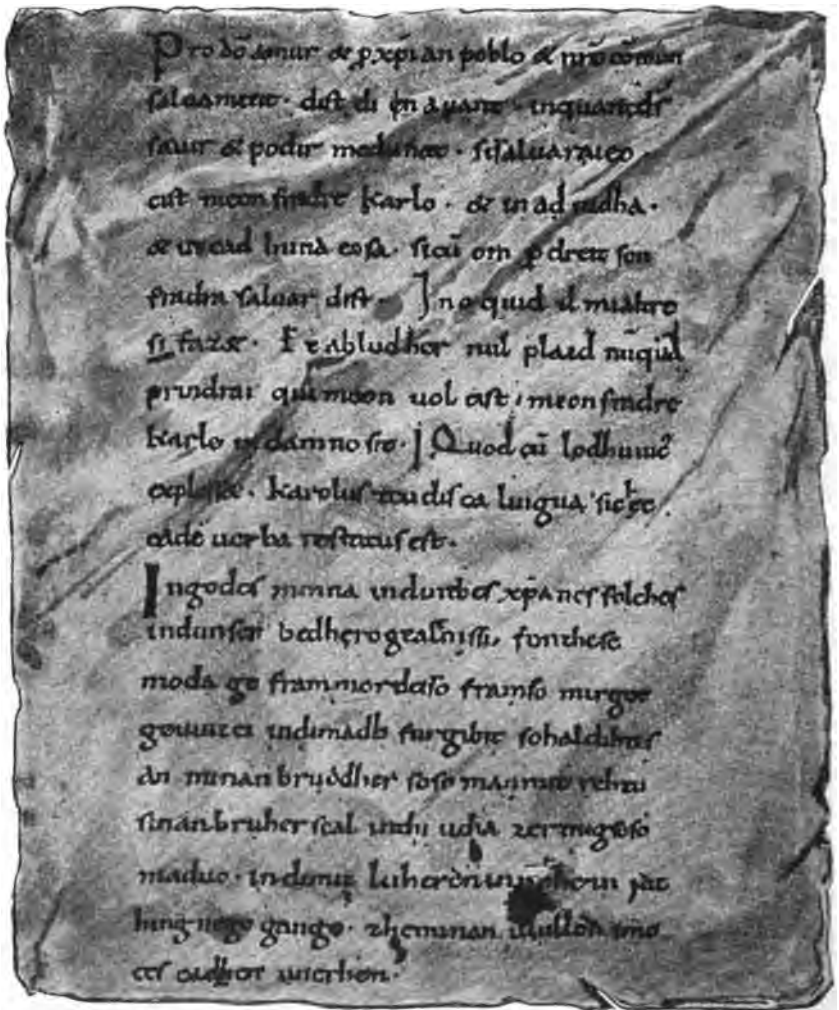 Pro dō amur & p xp̄ian poblo & nr̄o cōmun
saluament. dist di en auant. inquantd̄s
sauir & podir medunat. sisaluaraieo.
cist meon fradre Karlo. & in ad iudha.
& in cad huna cosa. sicū om p dreit son
fradra saluar dist. Ino quid il mialtre
si faz&. Et abludher nul plaid nūquā
prindrai qui meon uol cist meon fradre
Karlo in damno sit. Quod cū lodhuuic
explesset. Karolus teudisca lingua sic hec
eadē uerba testatus est.
Ingodes minna indinthes xp̄anes folches
indunser bedhero gealtnissi. fonthese
moda ge frammordesso framso mirgot
geuuizci indimadh furgibit sohaldihtes
an minan bruodher soso manmit rehtu
sinan bruher scal inthi utha zermigsoso
maduo. indimit luheren
hing nege gango. zheminan uuillon imo
ces cadhen uuerhen.